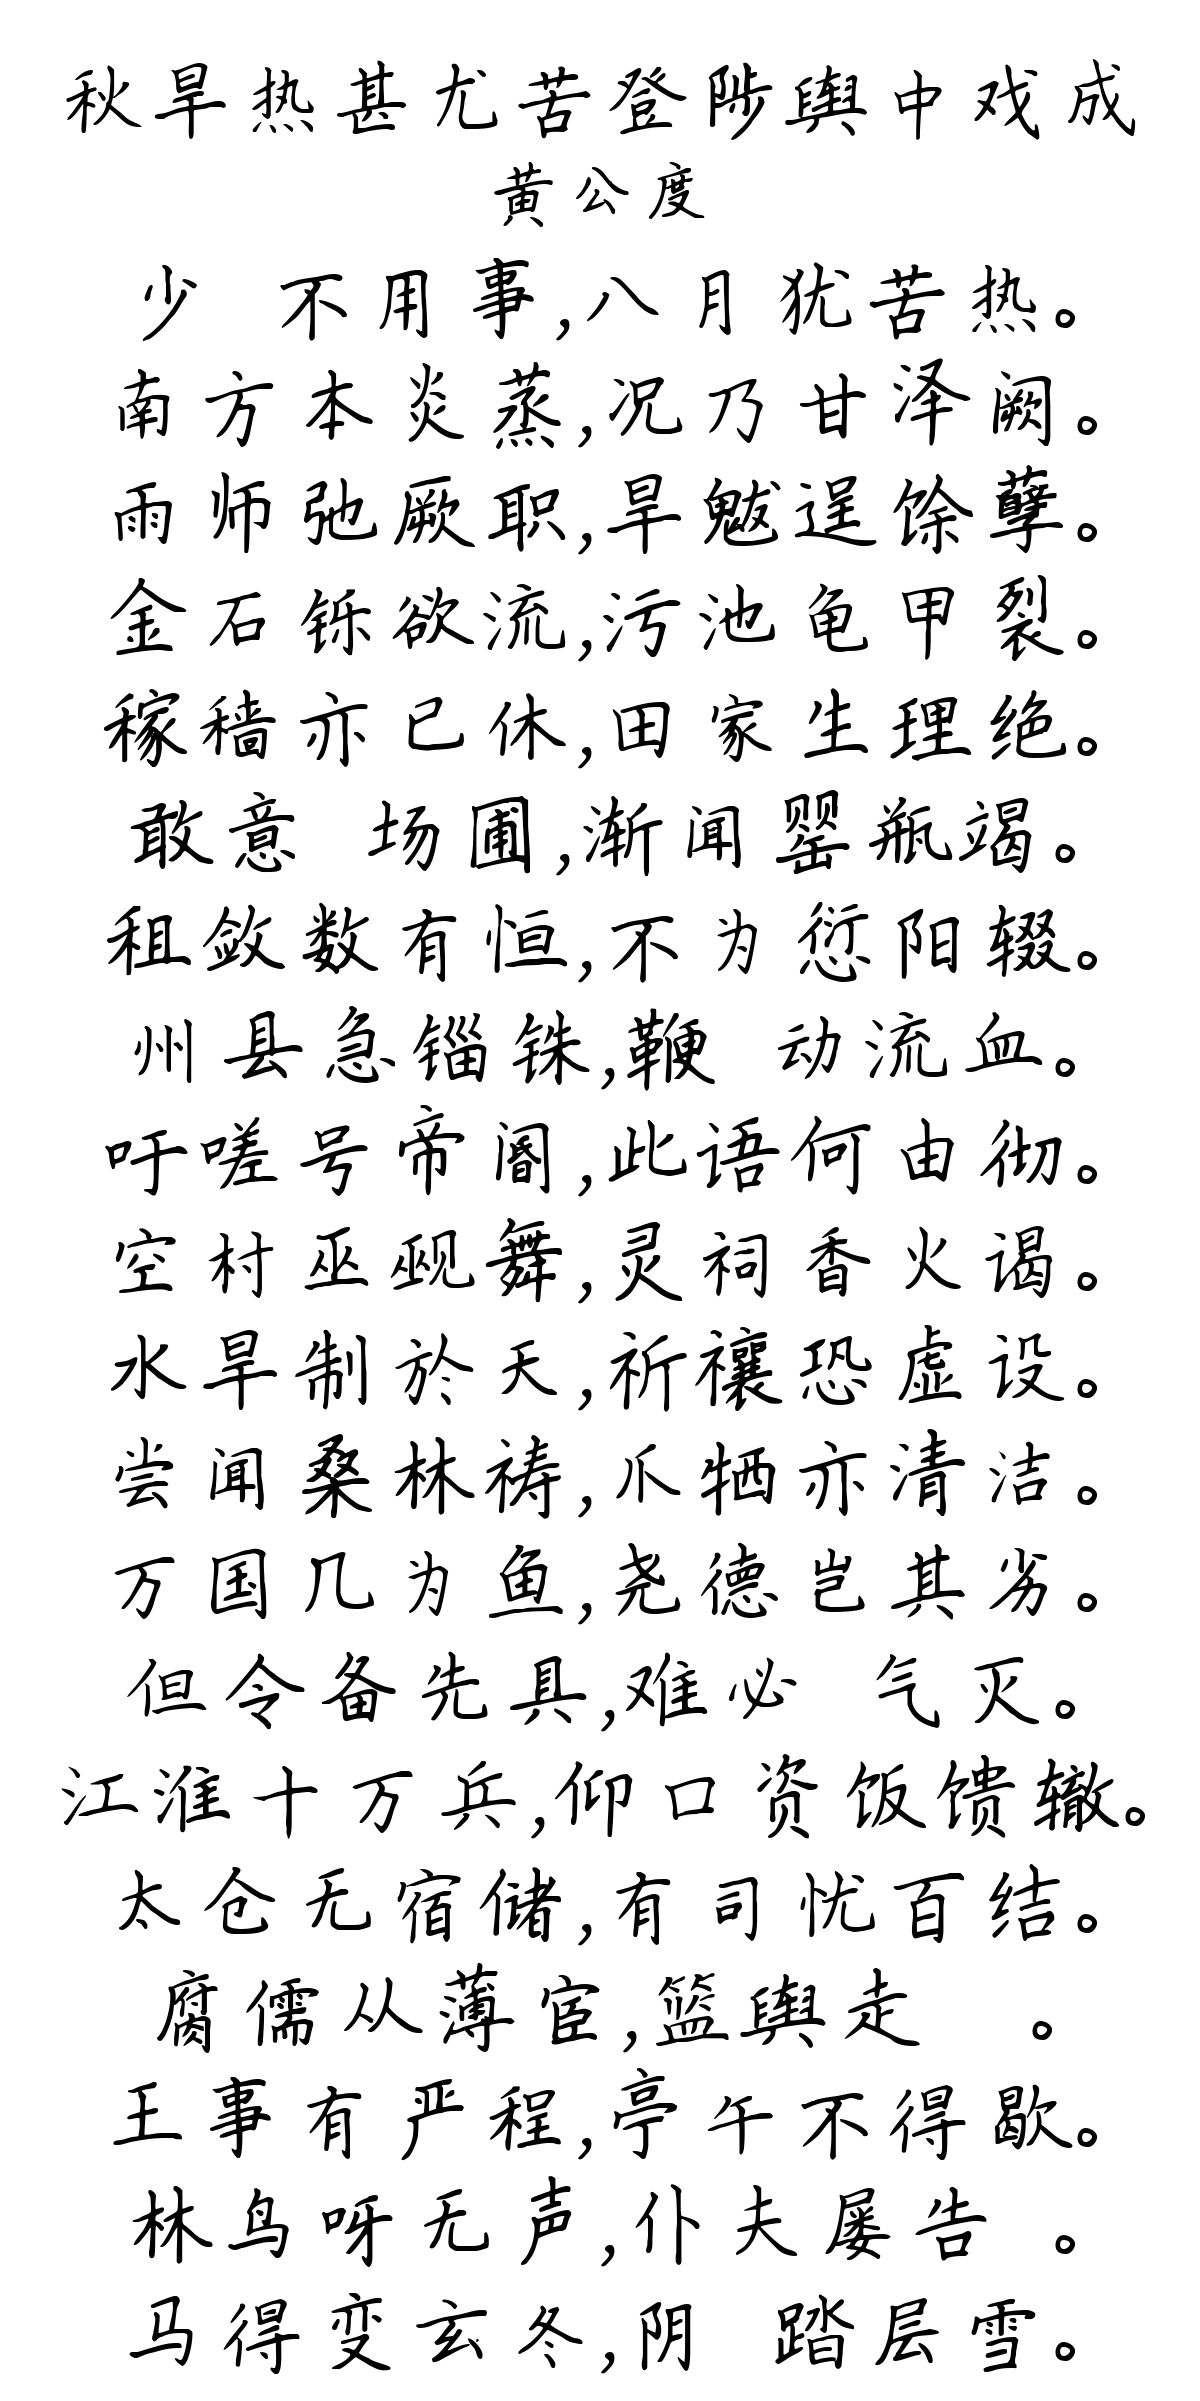 秋旱热甚尤苦登陟舆中戏成
黄公度
少 不用事,八月犹苦热。
南方本炎蒸,况乃甘泽阙。
雨师弛厥职,旱魃逞馀孽。
金石铄欲流,污池龟甲裂。
稼穑亦已休,田家生理绝。
敢意 场圃,渐闻罂瓶竭。
租敛数有恒,不为愆阳辍。
州县急锱铢,鞭 动流血。
吁嗟号帝阍,此语何由彻。
空村巫觋舞,灵祠香火谒。
水旱制於天,祈禳恐虚设。
尝闻桑林祷,爪牺亦清洁。
万国几为鱼,尧德岂其劣。
但令备先具,难必 气灭。
江淮十万兵,仰口资饭馈辙。
太仓无宿储,有司忧百结。
腐儒从薄宦,篮舆走 。
王事有严程,亭午不得歇。
林鸟呀无声,仆夫屡告 。
马得变玄冬,阴 踏层雪。